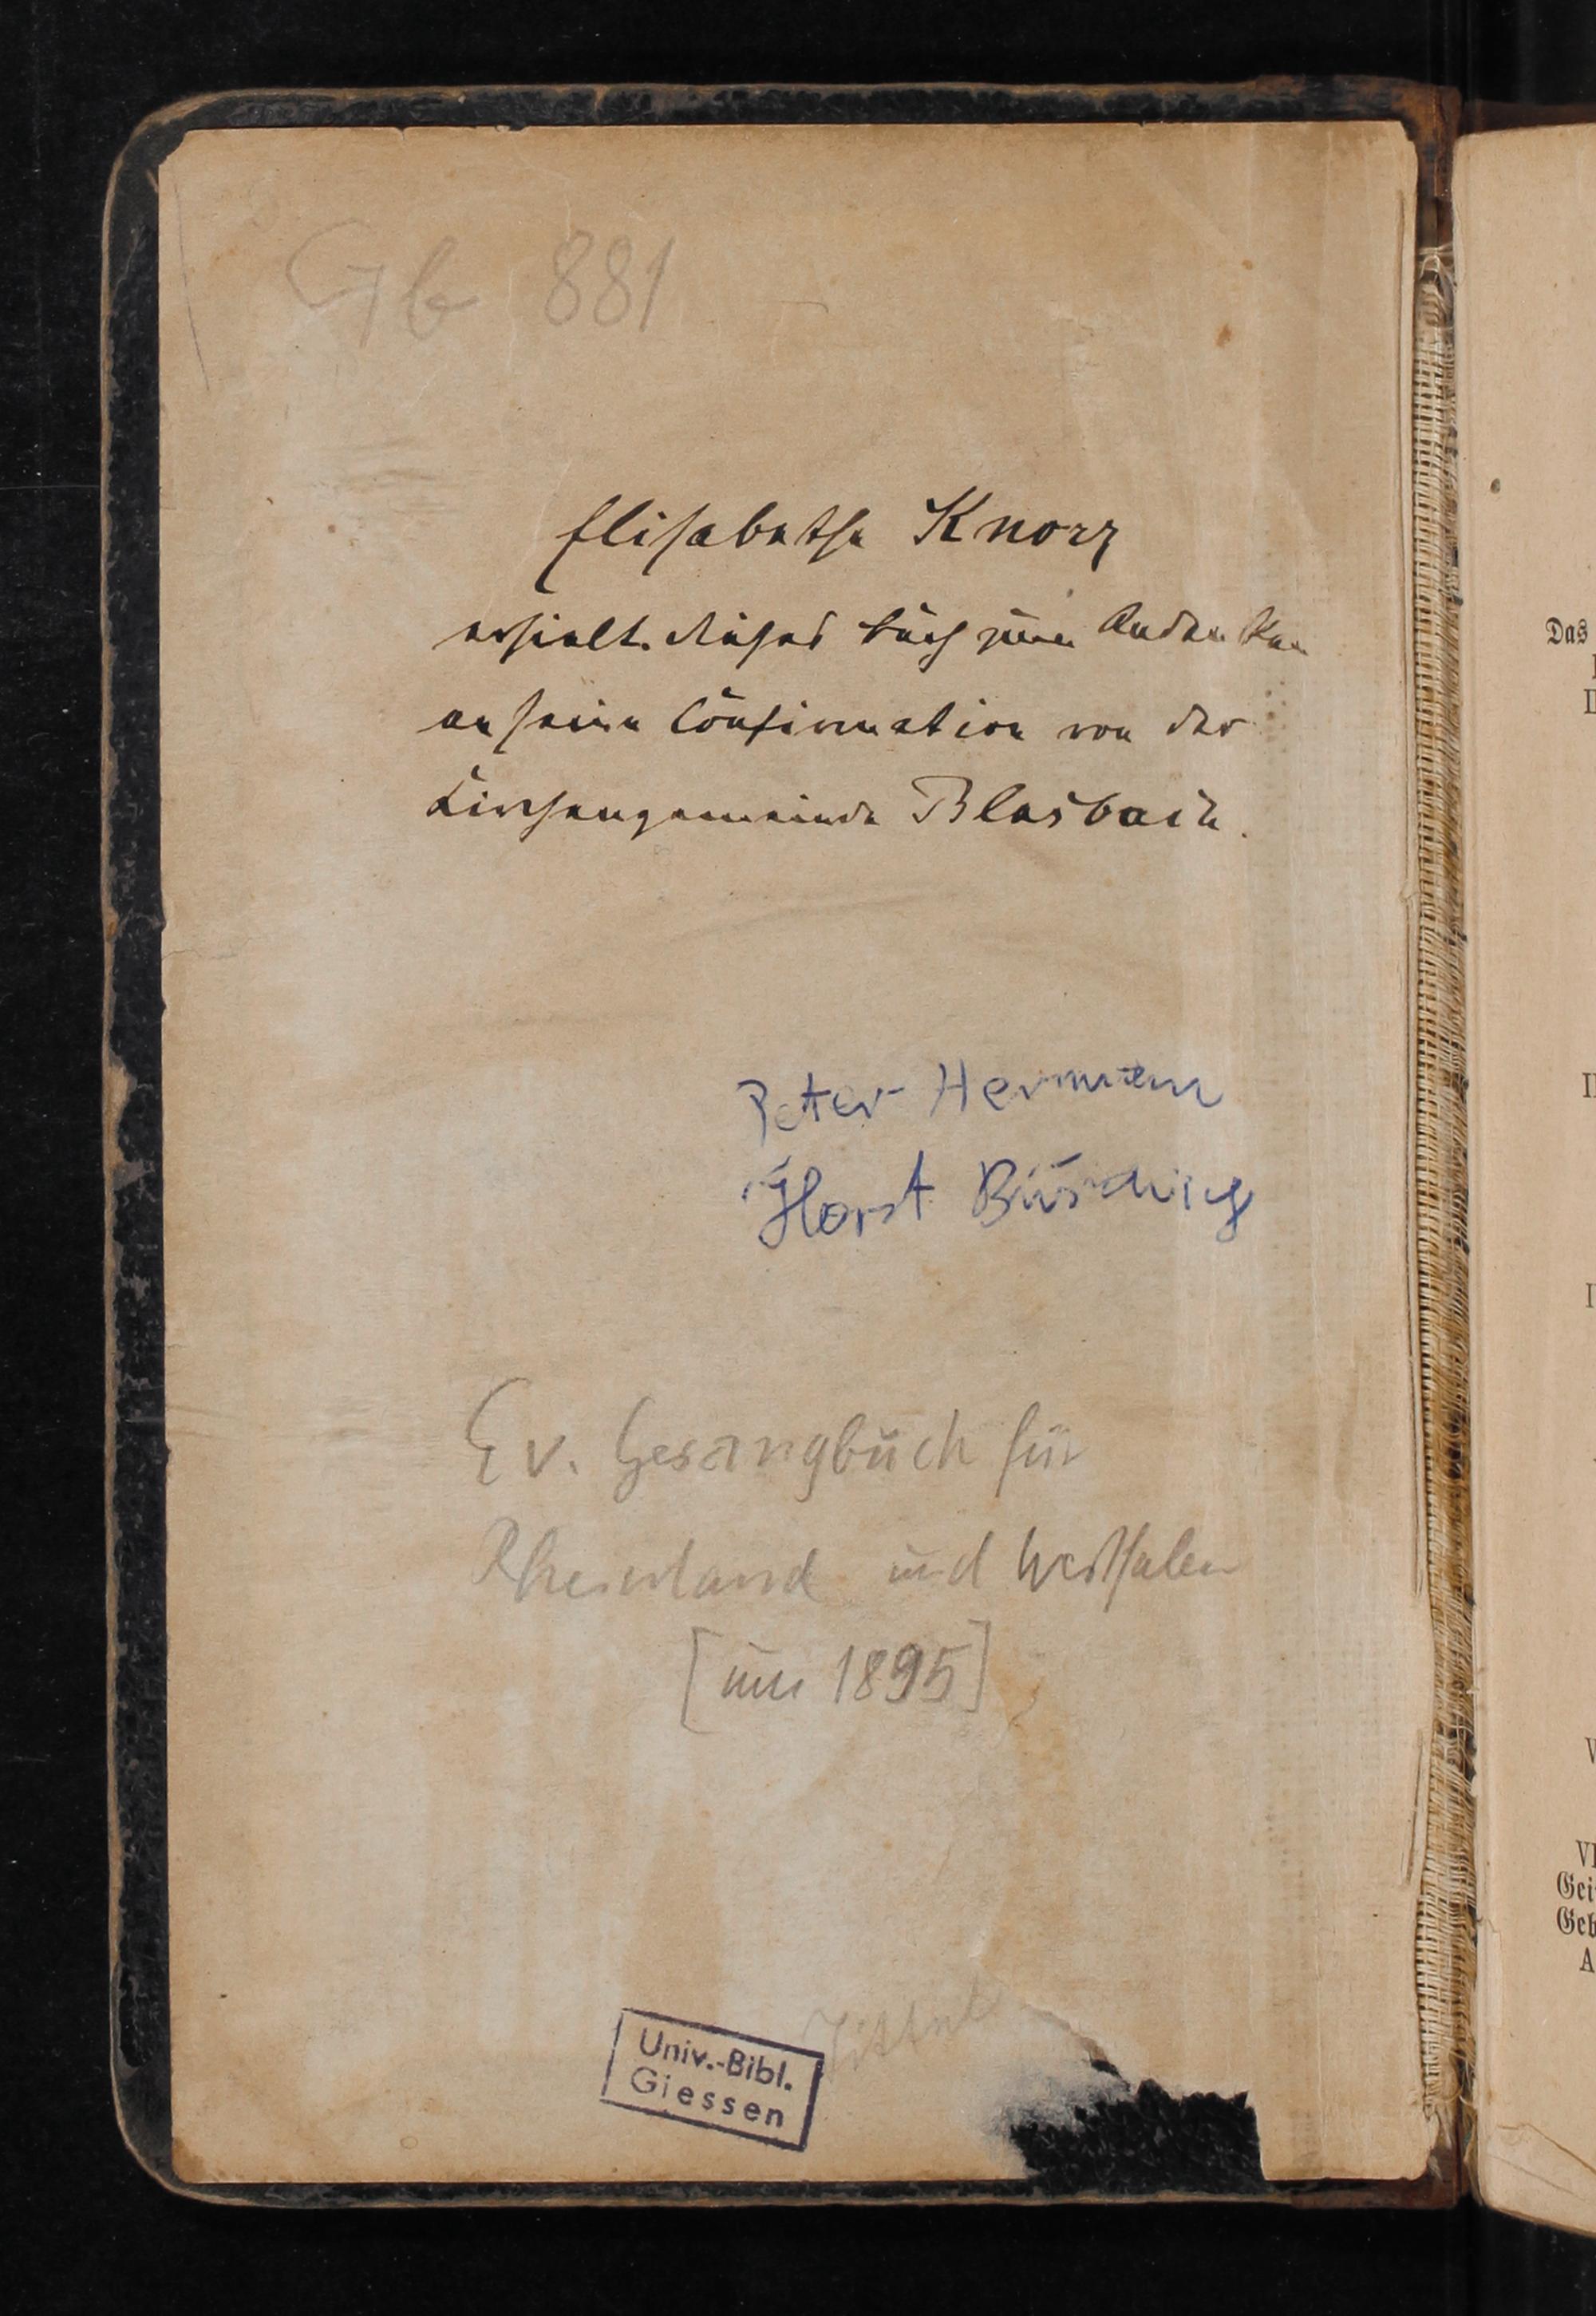 Gb 881
Elisabethe Knorz
erhielt dieses Buch zum Andenken
an seine Confirmation von der
Kirchengemeinde Blasbach.
Peter Hermann
Horst
Ev. Gesangbuch für
Rheinland und Westfalen
[um 1895]
Univ.-Bibl.
Giessen
Das